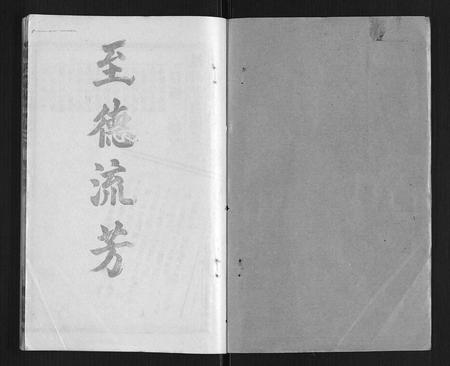 至德流芳